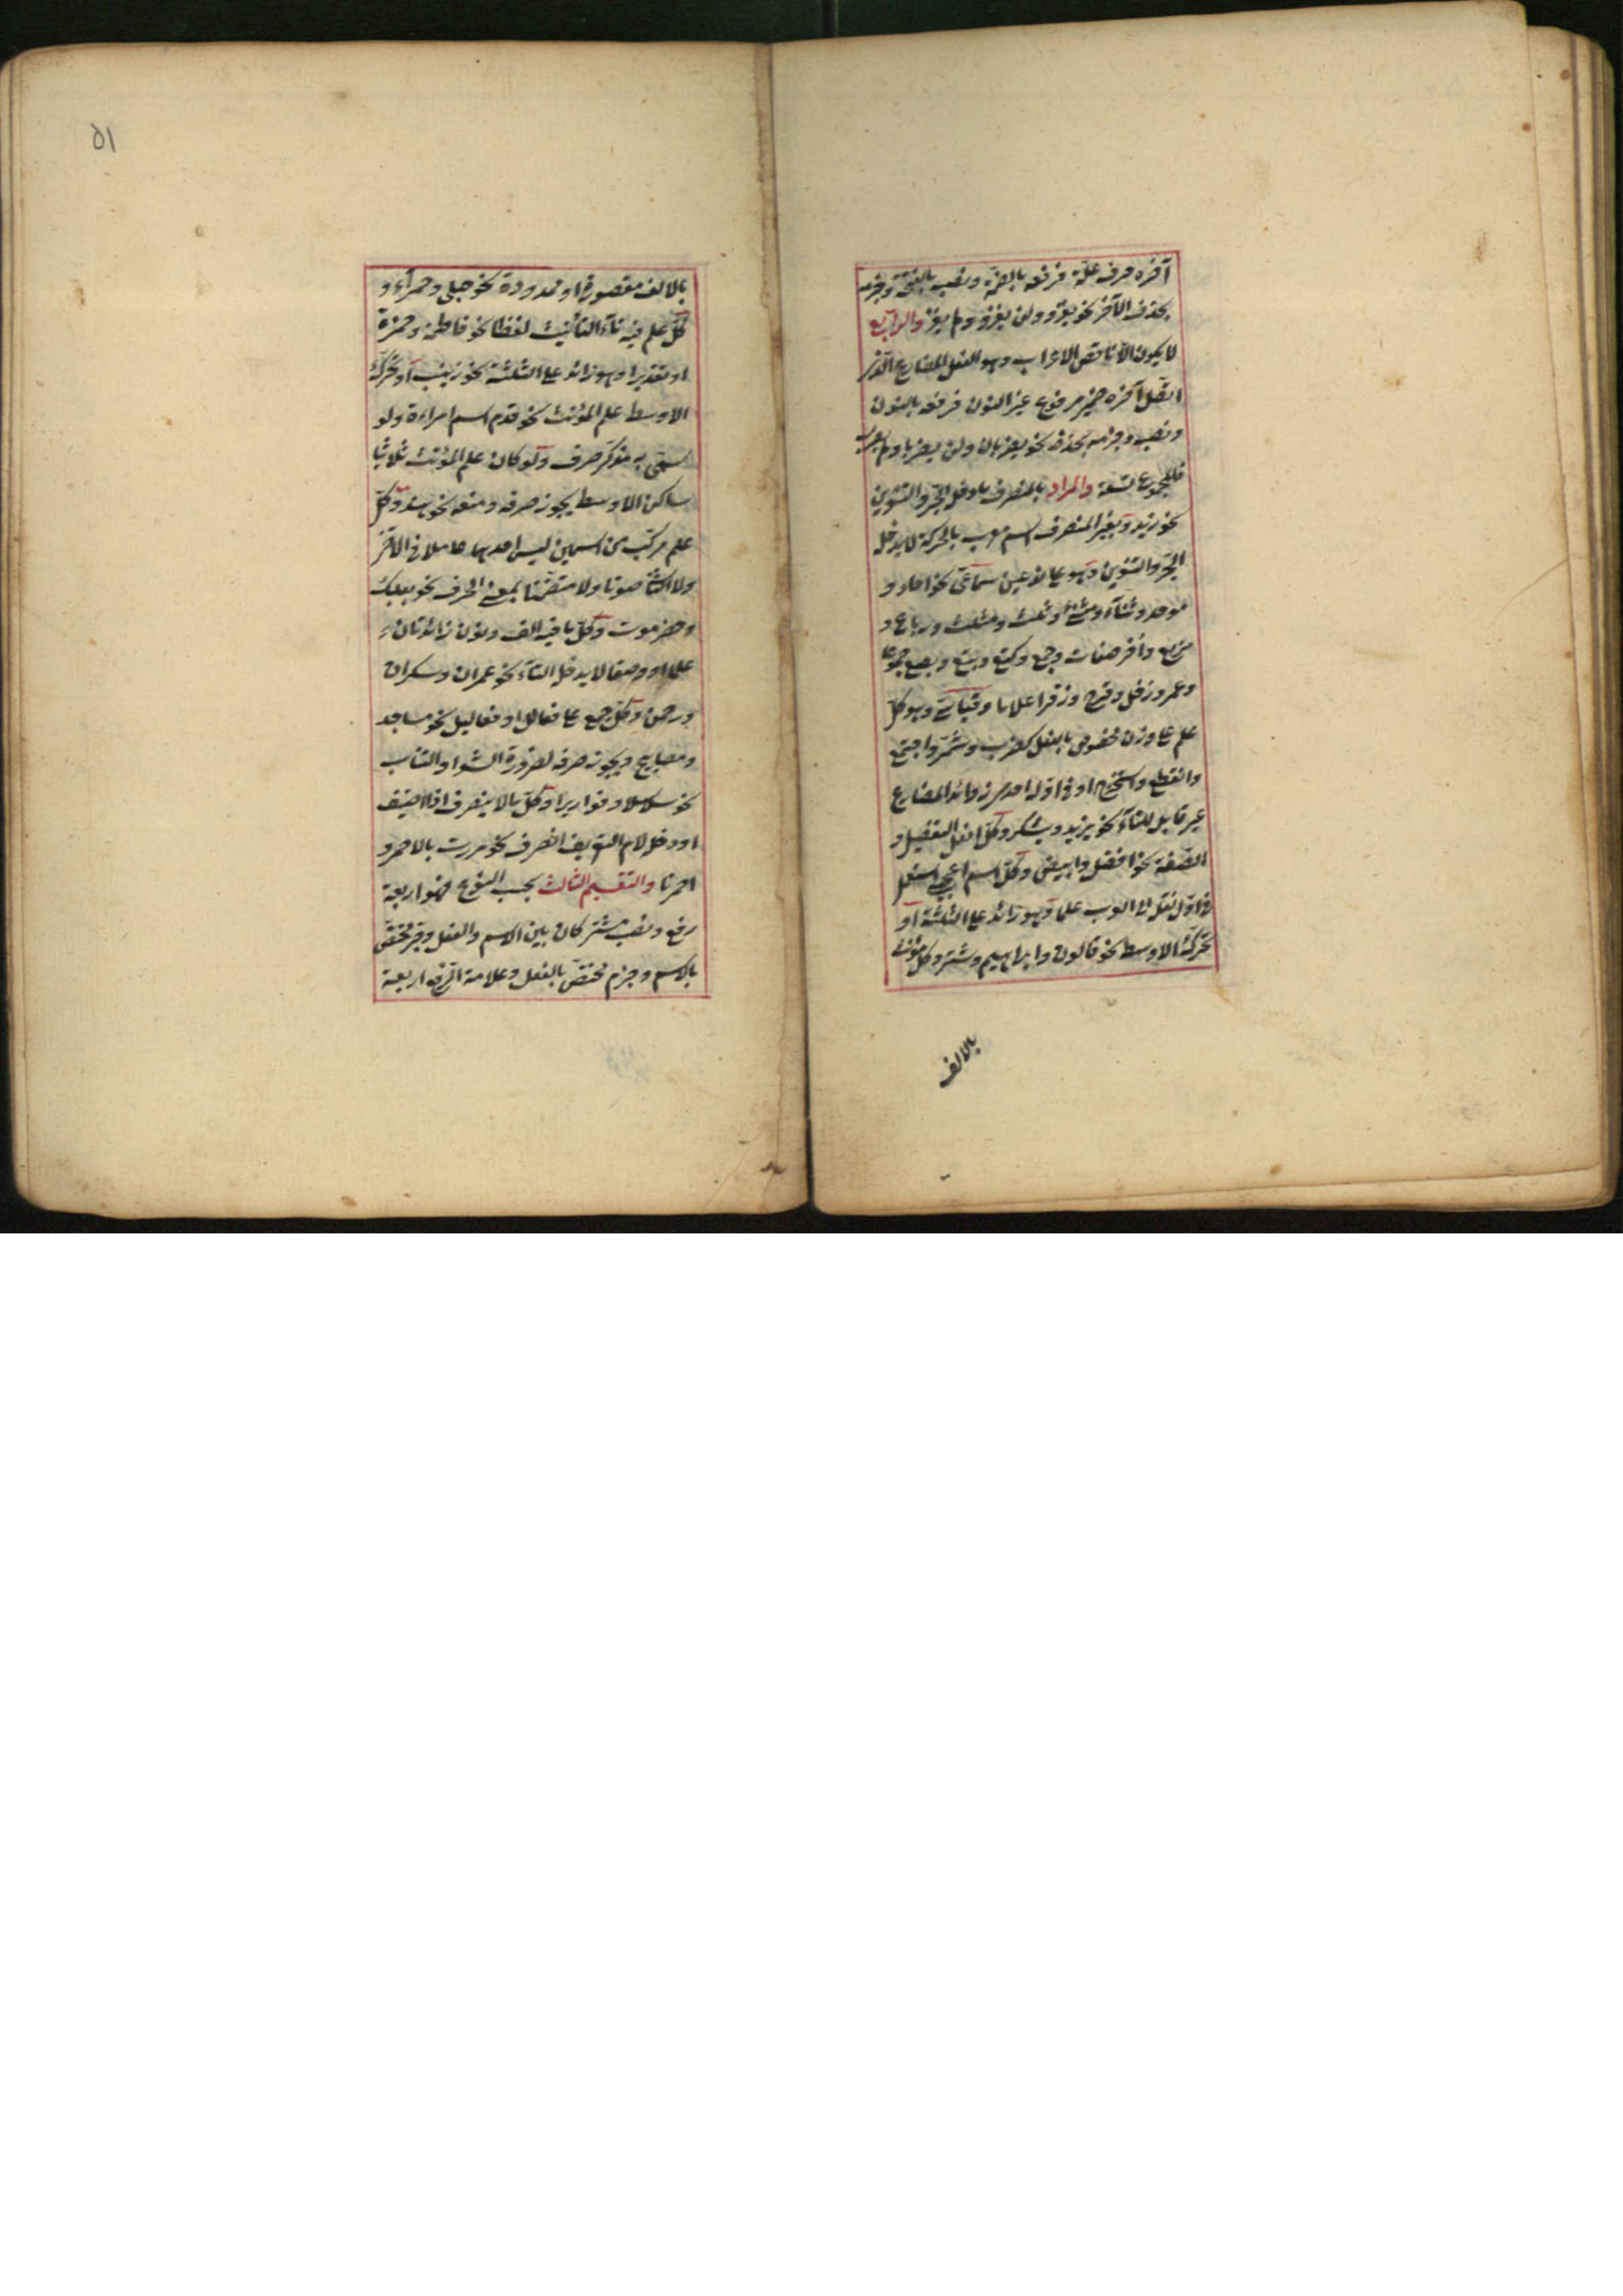 آخره حرف علّة فرفعه بالضمّة ونصبه بالفتحة وجزمه
بحذف الآخر نحو يغزو ولن يغزو ولم يغز والرابع
لا يكون الّا ناقص الاعراب وهو الفعل المضارع الّذى
اتّصل آخره ضمير مرفوع غير النون فرفعه بالنون
ونصبه وجزمه بحذفه نحو يضربان ولن يضربا ولم يضربا
فالمجموع تسعة والمراد بالمنصرف ما دخل الجرّ والتنوين
نحو زيد وبغير المنصرف اسم معرب بالحركة لا يدخله
الجرّ والتنوين وهو على نوعين سماعى نحو احاد و
موحد وثناء ومثنى وثلث ومثلث ورباع و
مربع واُخر صفات وجمع وكتع وبتع وبصع جموعا
وعمر وزفل وقزح وزفر اعلاما وقياسى وهو كلّ
علم على وزن مخصوص بالفعل كضرب وشمّر واجتمع
وانقطع واستخرج او فى اوّله احد من زوائد المضارع
غير قابل للتاء نحو يزيد ويشكر وكلّ افعل التفضيل و
الصفة نحو افضل وابيض وكلّ اسم اعجمى استعمل
فى اوّل نقله الى العرب علما وهو زائد على الثلثة او
تحرّك الاوسط نحو قالون وابراهيم وشتر وكلّ مؤنث
بالالف
٥١
بالالف مقصورة او ممدودة نحو حبلى وحمراء و
كلّ علم فيه تاء التأنيث لفظا نحو فاطمة وحمزة
او تقديرا وهو زائد على الثلثة نحو زينب او تحرّك
الاوسط علم المؤنث نحو قدم اسم امراءة ولو
سمّى به مذكّر صرف ولو كان علم المؤنث ثلاثيا
ساكن الاوسط يجوز صرفه ومنعه نحو هند وكلّ
علم مركّب من اسمين ليس احدهما عاملا فى الآخر
ولا الثّا صوتا ولا متضمّنا بمعنى الحرف نحو بعلبك
وحضرموت وكلّ ما فيه الف ونون زائدتان
علما او وصفا لا يدخل التاء نحو عمران وسكران
ورحمن وكلّ جمع على فعالل او فعاليل نحو مساجد
ومصابيح ويجوز صرفه لضرورة الشعر او التناسب
نحو سلاسلا وقواريرا وكلّ ما لا ينصرف اذا اضيف
او دخل لام التعريف انصرف نحو مررت بالاحمر و
احمرنا والتقسيم الثالث بحسب النوع فهو اربعة
رفع ونصب مشتركان بين الاسم والفعل وجر مختصّ
بالاسم وجزم مختصّ بالفعل وعلامة الرفع اربعة